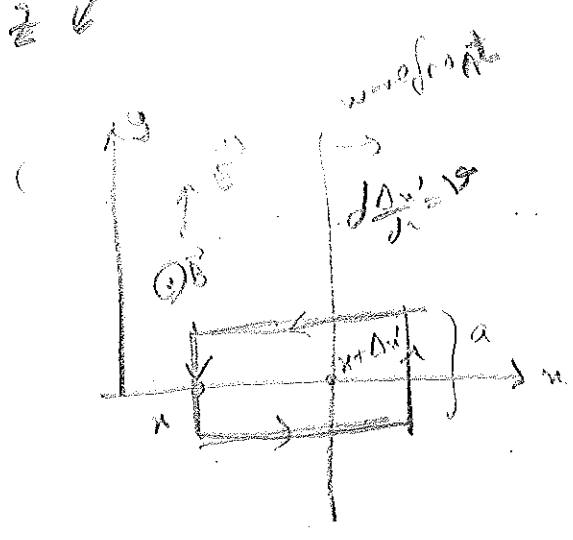 wavefront
y
E
dΔx'/dt = v
B
x + Δx'
a
x
x